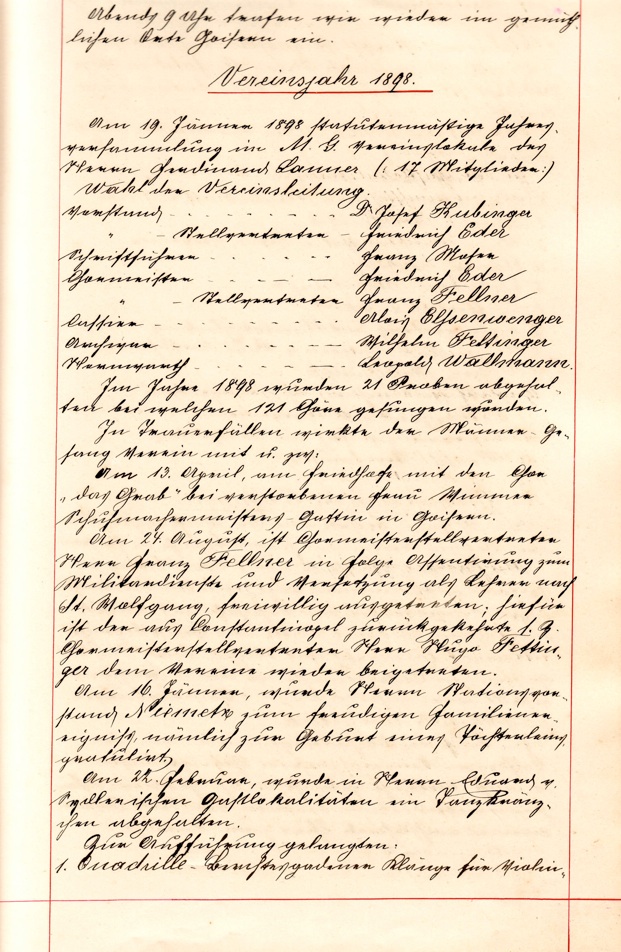 Abends 9 Uhr trafen wir wieder im gemüth-
lichen Orte Goisern ein.
Vereinsjahr 1898.
Am 19. Jänner 1898 statutenmäßige Jahres-
versammlung im M. G. Vereinslokale des
Herrn Ferdinand Lanner (: 17 Mitglieder:)
Wahl der Vereinsleitung.
Vorstand - - - - - - - Dr Josef Kubinger
" - Stellvertreter - Friedrich Eder
Schriftführer - - - - - Franz Moser
Chormeister - - - - Friedrich Eder
" - Stellvertreter Franz Fellner
Cassier - - - - - - - Alois Elssenwenger
Archivar - - - - - - Wilhelm Fettinger
Hornwarth - - - - - Leopold Wallmann.
Im Jahre 1898 wurden 21 Proben abgehal-
ten bei welchen 121 Chöre gesungen wurden.
In Trauerfällen wirkte der Männer-Ge-
sang Verein mit u. zw:
Am 13. April, am Friedhofe mit den Chor
"das Grab" bei verstorbenen Frau Wimmer
Schuhmachermeisters-Gattin in Goisern.
Am 24. August, ist Chormeisterstellvertreter
Herr Franz Fellner in Folge Assentirung zum
Militärdienste und Versetzung als Lehrer nach
St. Wolfgang, freiwillig ausgetreten; hiefür
ist der aus Constantinopel zurückgekehrte s. Z.
Chormeisterstellvertreter Herr Hugo Fettin-
ger dem Vereine wieder beigetreten.
Am 16. Jänner, wurde Herrn Stationsvor-
stand Niemetz zum freudigen Familiener-
eigniss, nämlich zur Geburt eines Töchterleins
gratulirt,
Am 22. Februar, wurde in Herrn Eduard v.
Gastlokalitäten ein Tanzkränz-
chen abgehalten.
Zur Aufführung gelangten:
1. Quadrille - Berchtesgadener Klänge für Violin-